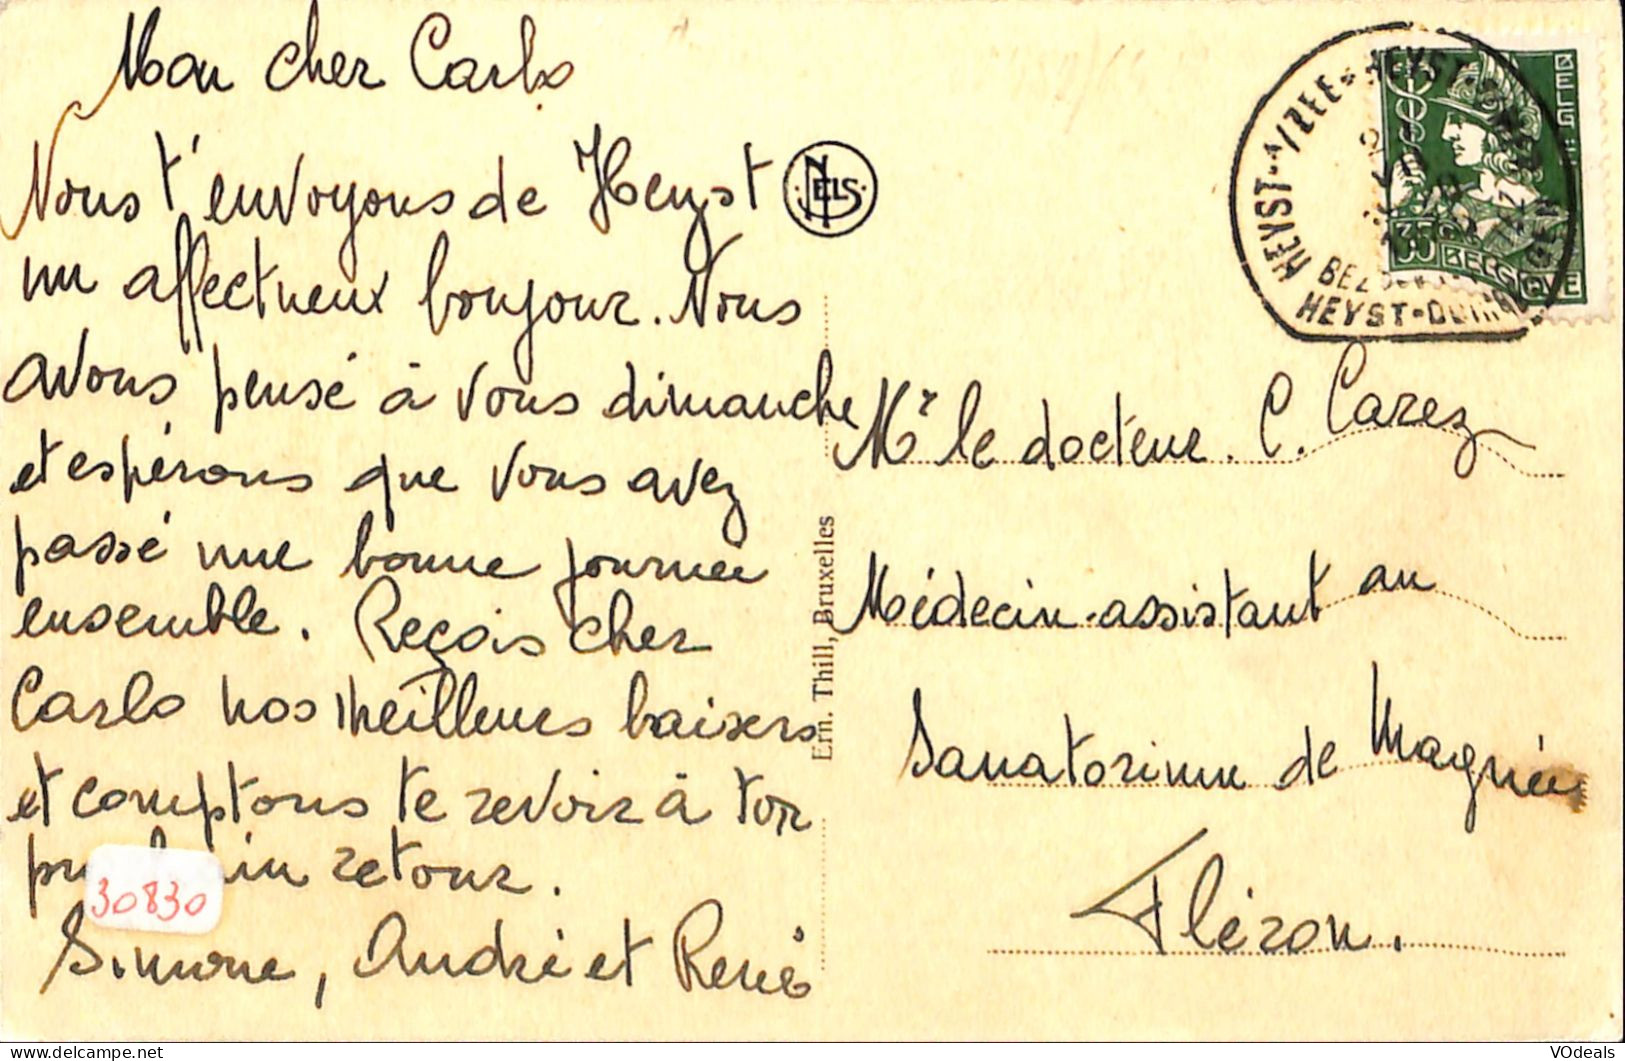 Mon cher Carlo
Nous t'envoyons de Heyst
un affectueux bonjour. Nous
avons pensé à vous dimanche
et espérons que vous avez
passé une bonne journée
ensemble. Reçois cher
Carlo nos meilleurs baisers
et comptons te revoir à ton
retour.
30830
Simone, André et René
NELS
Ern. Thill, Bruxelles
HEYST-A/ZEE
HEYST
BELGIQUE
35
Mr le docteur. C. Carez
Médecin-assistant au
Sanatorium de Magnée
Fléron.
VOdeals